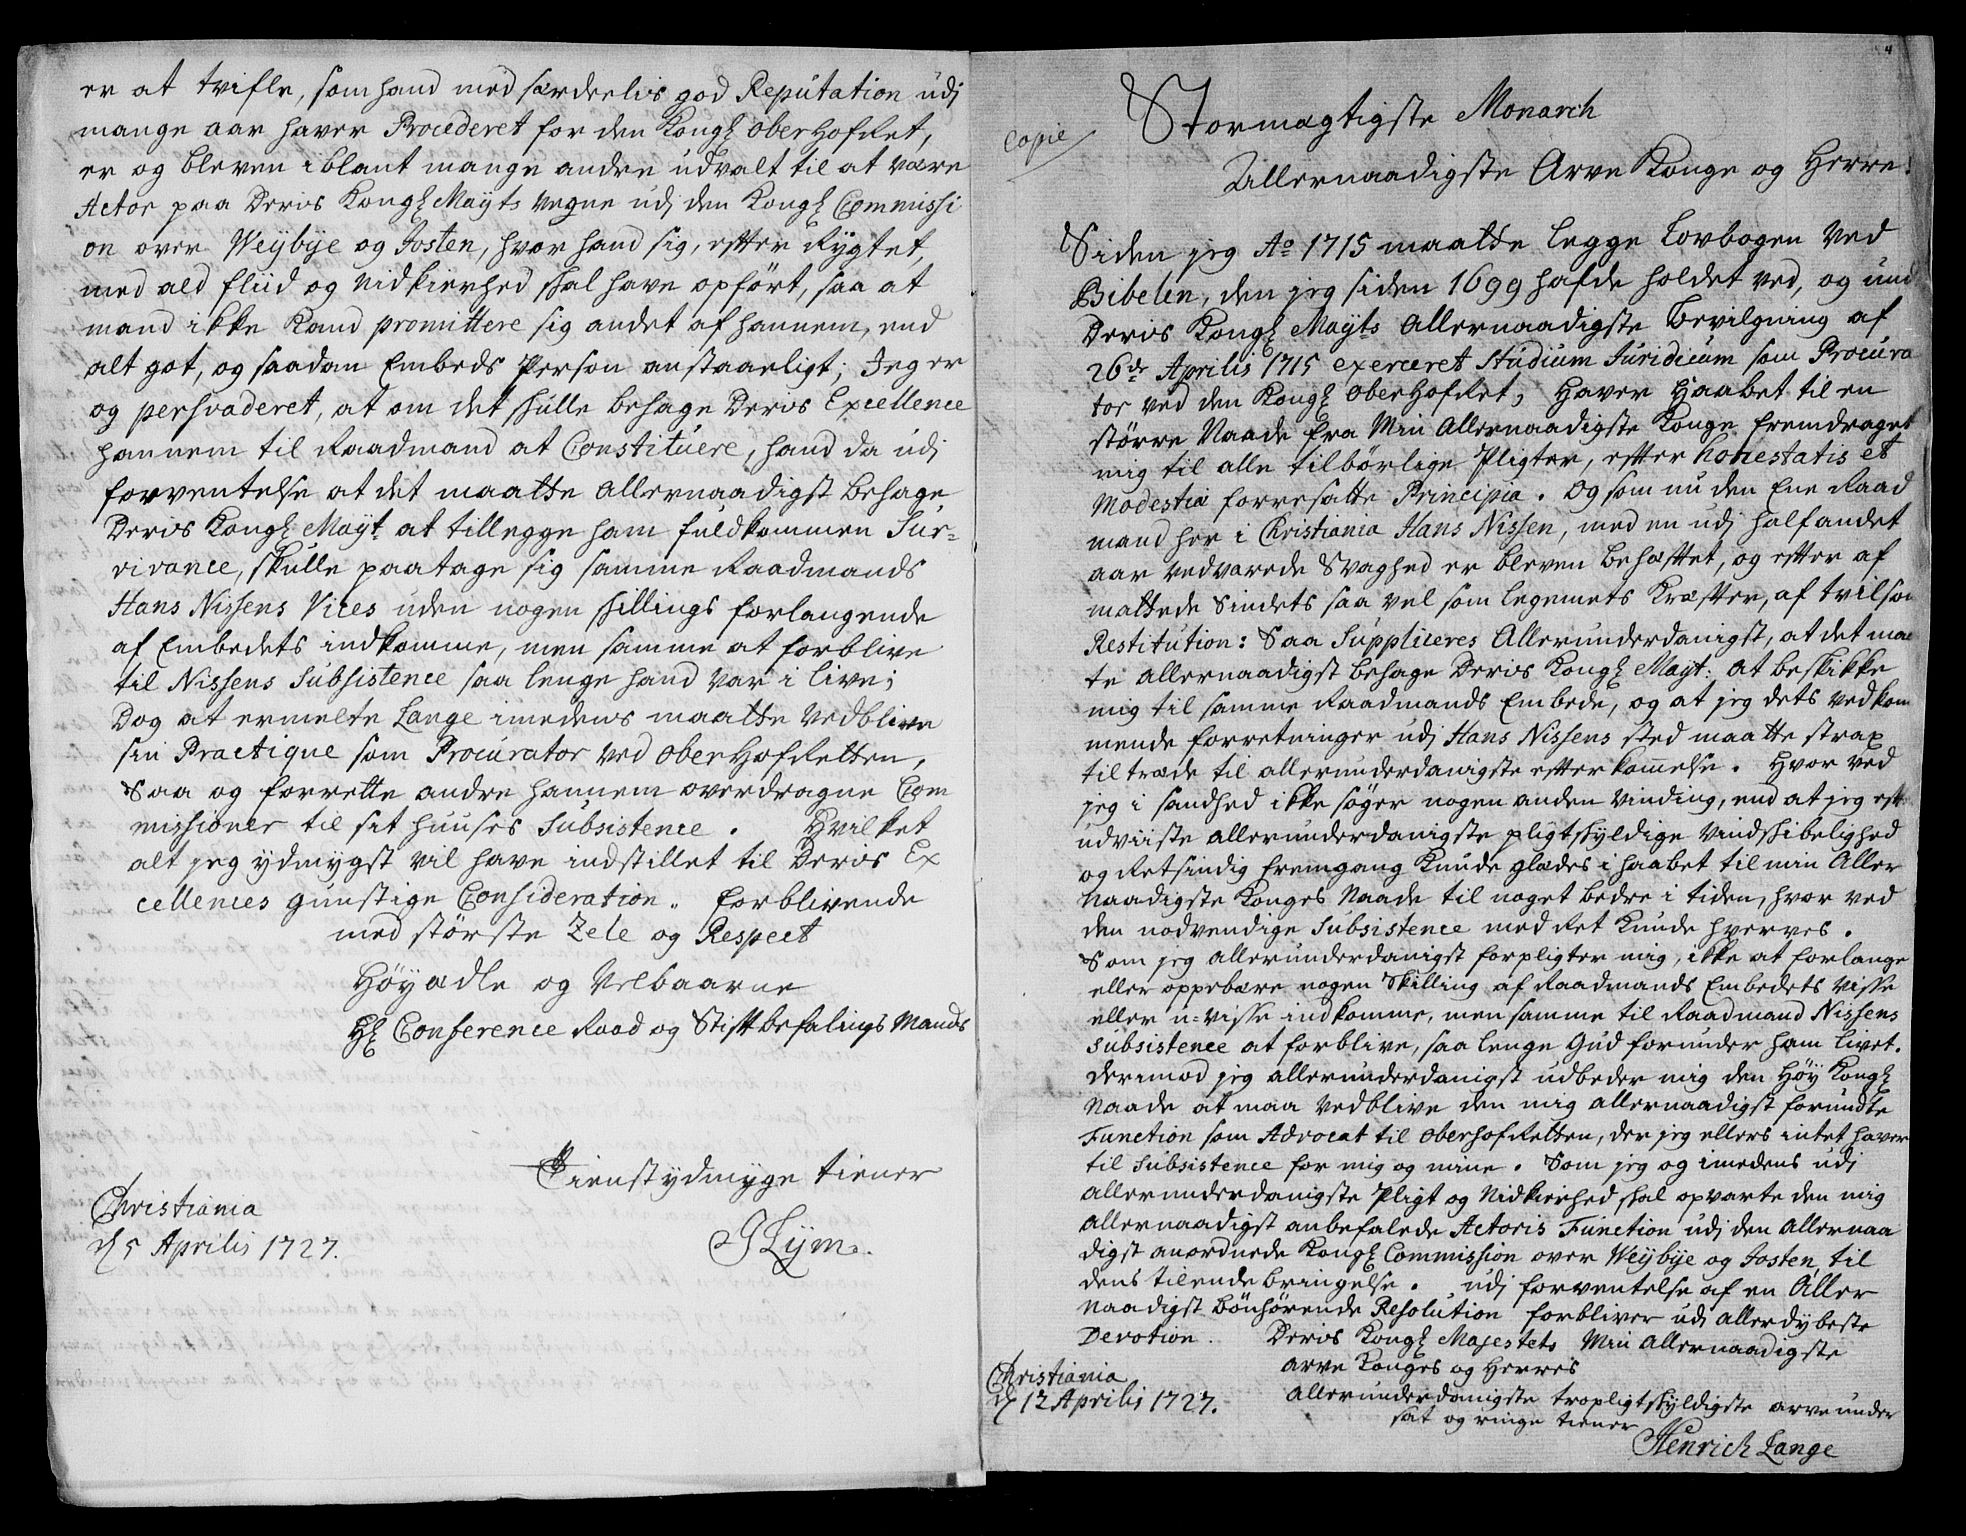 er at tvifle, som hand med særdeelis god Reputation udj
mange aar haver Procederet for den Kongl Ober Hof Ret,
er og bleven iblant mange andre udvalt til at være
Actor paa Deris Kongl Mayts vegne udj den Kongl Commissi
on over Weybye og Josten, hvor hand sig, efter Rygtet,
med ald fliid og nidkierhed skal have opført, saa at
mand ikke Kand promittere sig andet af hannem, end
alt got, og saadan Embeds Person anstaaeligt; Jeg er
og persvaderet, at om det skulle behage Deris Excellence
hannem til Raadmand at Constituere, hand da udj
forventelse at det maatte allernaadigst behage
Deris Kongl Mayt at tillegge ham fuldkommen Sur=
vivance, skulle paatage sig samme Raadmands
Hans Nissens Vices uden nogen skillings forlangende
af Embedets indkomme, men samme at forblive
til Nissens Subsistence saa lenge hand var i live;
Dog at ermelte Lange imedens maatte vedblive
sin Practique som Procurator ved Ober Hof Retten,
Saa og forrette andre hannem overdragne Com
missioner til sit huuses Subsistence. Hvilket
alt jeg ydmygst vil have indstillet til Deris Ex
cellences gunstige Consideration. Forblivende
med største Zele og Respect
Høyædle og Velbaarne
Hl Conference Raad og Stiftbefalings Mands
Tienstydmyge tiener
Christiania
d 5 Aprilis 1727.
4
Copie
Stormægtigste Monarch
Allernaadigste Arve Konge og Herre!
Siden jeg Ao 1715 maatte legge Lovbogen ved
Bibelen, den jeg siden 1699 hafde holdet ved, og und
Deris Kongl Mayts Allernaadigste Bevilgning af
26de Aprilis 1715 exerceret Studium Juridicum som Procura
tor ved den Kongl Ober Hof Ret, Haver Haabet til en
større Naade fra Min Allernaadigste Konge fremdraget
mig til alle tilbørlige Pligter, efter honestatis et
Modestiæ forresatte Principia. Og som nu den Ene Raad
mand her i Christiania Hans Nissen, med en udj halfandet
aar vedvarede Svaghed er bleven behæftet, og efter af
mattede Sindets saa vel som legemets Kræfter, af tvilsom
Restitution: Saa Suppliceres Allerunderdanigst, at det maa
te allernaadigst behage Deris Kongl Mayt. at beskikke
mig til samme Raadmands Embede, og at jeg dets vedkom
mende forretninger udj Hans Nissens sted maatte strax
tiltræde til allerunderdanigste efterkommelse. Hvor ved
jeg i sandhed ikke søger nogen anden vinding, end at jeg eft
udviiste allerunderdanigste pligtskyldige vindskibelighed
og Retsindig fremgang Kunde glædes i haabet til min Aller
Naadigste Konges Naade til noget bedre i tiden, hvor ved
den nødvendige Subsistence med Ret Kunde hverves.
Som jeg allerunderdanigst forpligter mig, ikke at forlange
eller oppebære nogen Skilling af Raadmands Embedets visse
eller u=visse indkomme, men samme til Raadmand Nissens
Subsistence at forblive, saa lenge Gud forunder ham livet.
derimod jeg allerunderdanigst udbeder mig den Høy Kongl
Naade at maa vedblive den mig allernaadigst forundte
Function som Advocat til Oberhof Retten, der jeg ellers intet haver
til Subsistence for mig og mine. Som jeg og imedens udj
allerunderdanigste Pligt og Nidkierhed skal opvarte den mig
allernaadigst anbefalede Actoris Function udj den allernaa
digst anordnede Kongl Commission over Weybye og Josten, til
dens tilendebringelse. udj forventelse af en Aller
naadigst bønhørende Resolution forbliver udj allerdybeste
Devotion. Deris Kongl Majestets Min Allernaadigste
Arve Konges og Herres
Christiania
d 12 Aprilis 1727.
allerunderdanigste tropligtskyldigste arve under
sat og ringe tiener
Henrich Lange